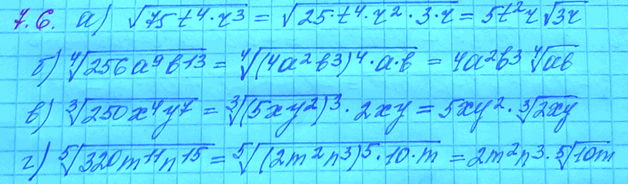 7.6. а) √(75t⁴·r³) = √(25·t⁴·r²·3·r) = 5t²r √(3r)
б) ⁴√(256a⁹b¹³) = ⁴√((4a²b³)⁴·a·b) = 4a²b³ ⁴√(ab)
в) ³√(250x⁴y⁷) = ³√((5xy²)³·2xy) = 5xy²·³√(2xy)
г) ⁵√(320m¹¹n¹⁵) = ⁵√((2m²n³)⁵·10·m) = 2m²n³·⁵√(10m)